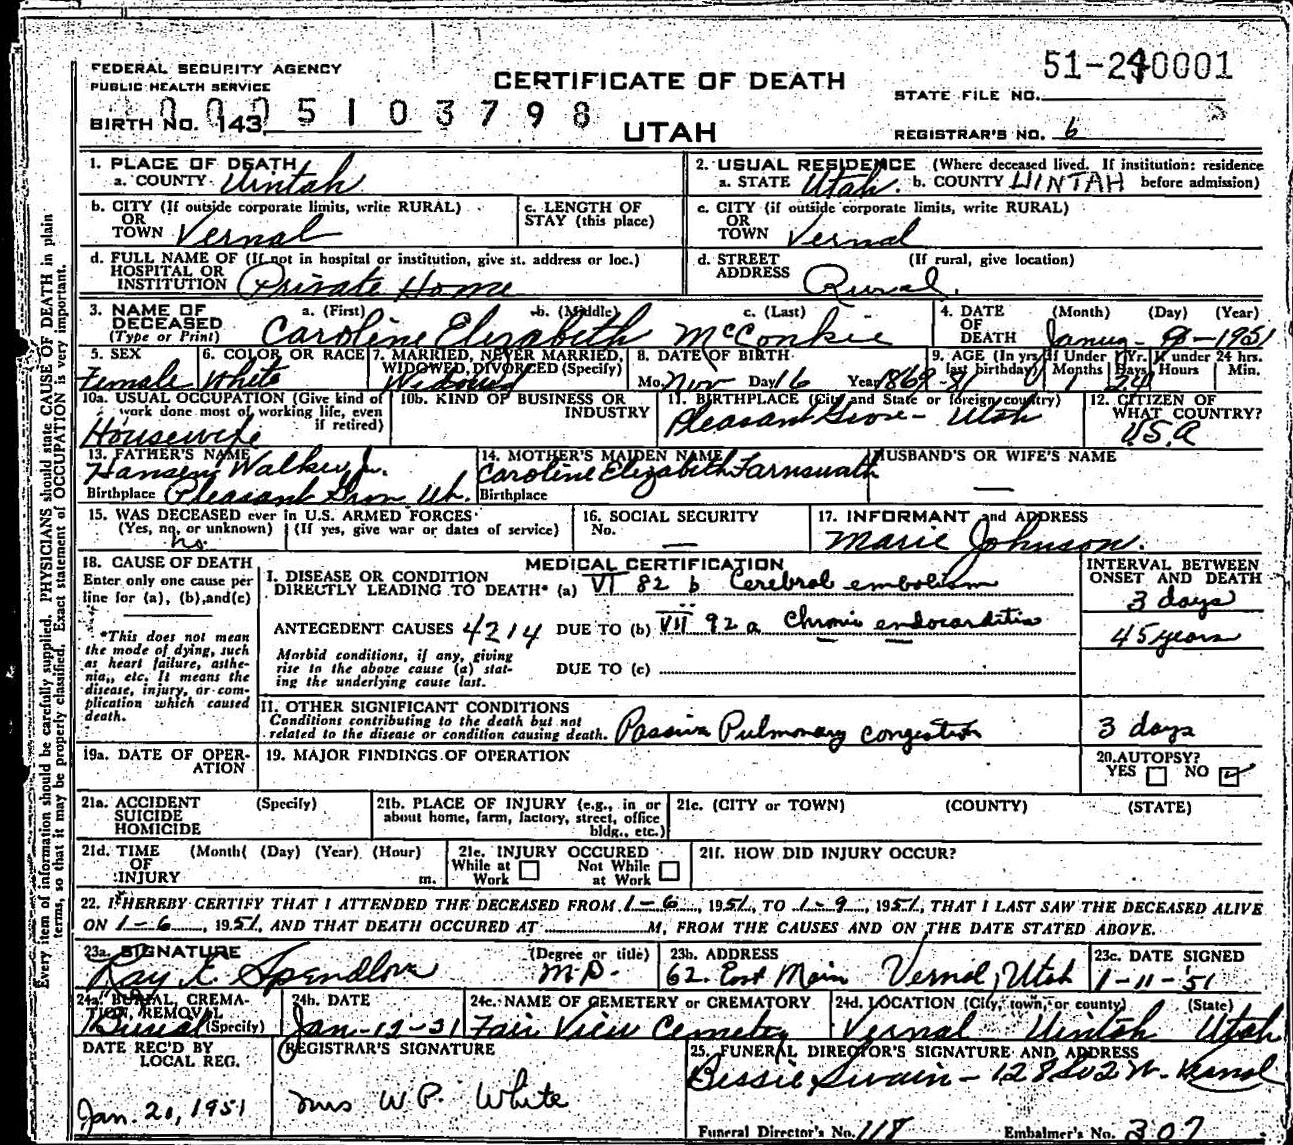 FEDERAL SECURITY AGENCY
PUBLIC HEALTH SERVICE
CERTIFICATE OF DEATH
UTAH
51-240001
STATE FILE NO.
BIRTH NO. 143 0005103798
REGISTRAR'S NO. 6
Every item of information should be carefully supplied. PHYSICIANS should state CAUSE OF DEATH in plain
terms, so that it may be properly classified. Exact statement of OCCUPATION is very important.
1. PLACE OF DEATH
a. COUNTY Uintah
2. USUAL RESIDENCE (Where deceased lived. If institution: residence
a. STATE Utah. b. COUNTY UINTAH before admission)
b. CITY (If outside corporate limits, write RURAL)
OR
TOWN Vernal
c. LENGTH OF
STAY (this place)
c. CITY (if outside corporate limits, write RURAL)
OR
TOWN Vernal
d. FULL NAME OF (If not in hospital or institution, give st. address or loc.)
HOSPITAL OR
INSTITUTION Private Home
d. STREET (If rural, give location)
ADDRESS Rural.
3. NAME OF DECEASED
(Type or Print)
a. (First) b. (Middle) c. (Last)
Caroline Elizabeth McConkie
4. DATE OF DEATH
(Month) (Day) (Year)
Januy - 9 - 1951
5. SEX
Female
6. COLOR OR RACE
White
7. MARRIED, NEVER MARRIED,
WIDOWED, DIVORCED (Specify)
Widowed
8. DATE OF BIRTH
Mo. Nov Day 16 Year 1869
9. AGE (In yrs. last birthday) If Under 1 Yr. If under 24 hrs.
Months Days Hours Min.
81 1 24
10a. USUAL OCCUPATION (Give kind of
work done most of working life, even
if retired)
Housewife
10b. KIND OF BUSINESS OR
INDUSTRY
11. BIRTHPLACE (City and State or foreign country)
Pleasant Grove - Utah
12. CITIZEN OF
WHAT COUNTRY?
U.S.A
13. FATHER'S NAME
Hansen Walker Jr.
Birthplace Pleasant Grov Ut.
14. MOTHER'S MAIDEN NAME
Caroline Elizabeth Farnswath
Birthplace
HUSBAND'S OR WIFE'S NAME
—
15. WAS DECEASED ever in U.S. ARMED FORCES
(Yes, no, or unknown) (If yes, give war or dates of service)
no.
16. SOCIAL SECURITY
No. —
17. INFORMANT and ADDRESS
Marie Johnson.
18. CAUSE OF DEATH
Enter only one cause per
line for (a), (b), and (c)
*This does not mean
the mode of dying, such
as heart failure, asthe-
nia, etc. It means the
disease, injury, or com-
plication which caused
death.
MEDICAL CERTIFICATION
I. DISEASE OR CONDITION
DIRECTLY LEADING TO DEATH* (a) VI 82 b Cerebral embolism
ANTECEDENT CAUSES 4214 DUE TO (b) VII 92a Chronic endocarditis
Morbid conditions, if any, giving
rise to the above cause (a) stat-
ing the underlying cause last.
DUE TO (c)
INTERVAL BETWEEN
ONSET AND DEATH
3 days
45 years
II. OTHER SIGNIFICANT CONDITIONS
Conditions contributing to the death but not
related to the disease or condition causing death. Passive Pulmonary congestion
3 days
19a. DATE OF OPER-
ATION
19. MAJOR FINDINGS OF OPERATION
20. AUTOPSY?
YES NO
21a. ACCIDENT (Specify)
SUICIDE
HOMICIDE
21b. PLACE OF INJURY (e.g., in or
about home, farm, factory, street, office
bldg., etc.)
21c. (CITY or TOWN) (COUNTY) (STATE)
21d. TIME (Month) (Day) (Year) (Hour)
OF
INJURY m.
21e. INJURY OCCURED
While at Work Not While at Work
21f. HOW DID INJURY OCCUR?
22. I HEREBY CERTIFY THAT I ATTENDED THE DECEASED FROM 1-6, 1951, TO 1-9, 1951, THAT I LAST SAW THE DECEASED ALIVE
ON 1-6, 1951, AND THAT DEATH OCCURED AT M, FROM THE CAUSES AND ON THE DATE STATED ABOVE.
23a. SIGNATURE (Degree or title)
Ray E. Spendlove M.D.
23b. ADDRESS
62. East Main Vernal, Utah
23c. DATE SIGNED
1-11-'51
24a. BURIAL, CREMA-
TION, REMOVAL
Burial (Specify)
24b. DATE
Jan-12-51
24c. NAME OF CEMETERY or CREMATORY
Fair View Cemetery
24d. LOCATION (City, town, or county) (State)
Vernal Uintah Utah
DATE REC'D BY
LOCAL REG.
Jan. 20, 1951
REGISTRAR'S SIGNATURE
Mrs W.P. White
25. FUNERAL DIRECTOR'S SIGNATURE AND ADDRESS
Bessie Swain - 128 So 2 W - Vernal
Funeral Director's No. 118 Embalmer's No. 307